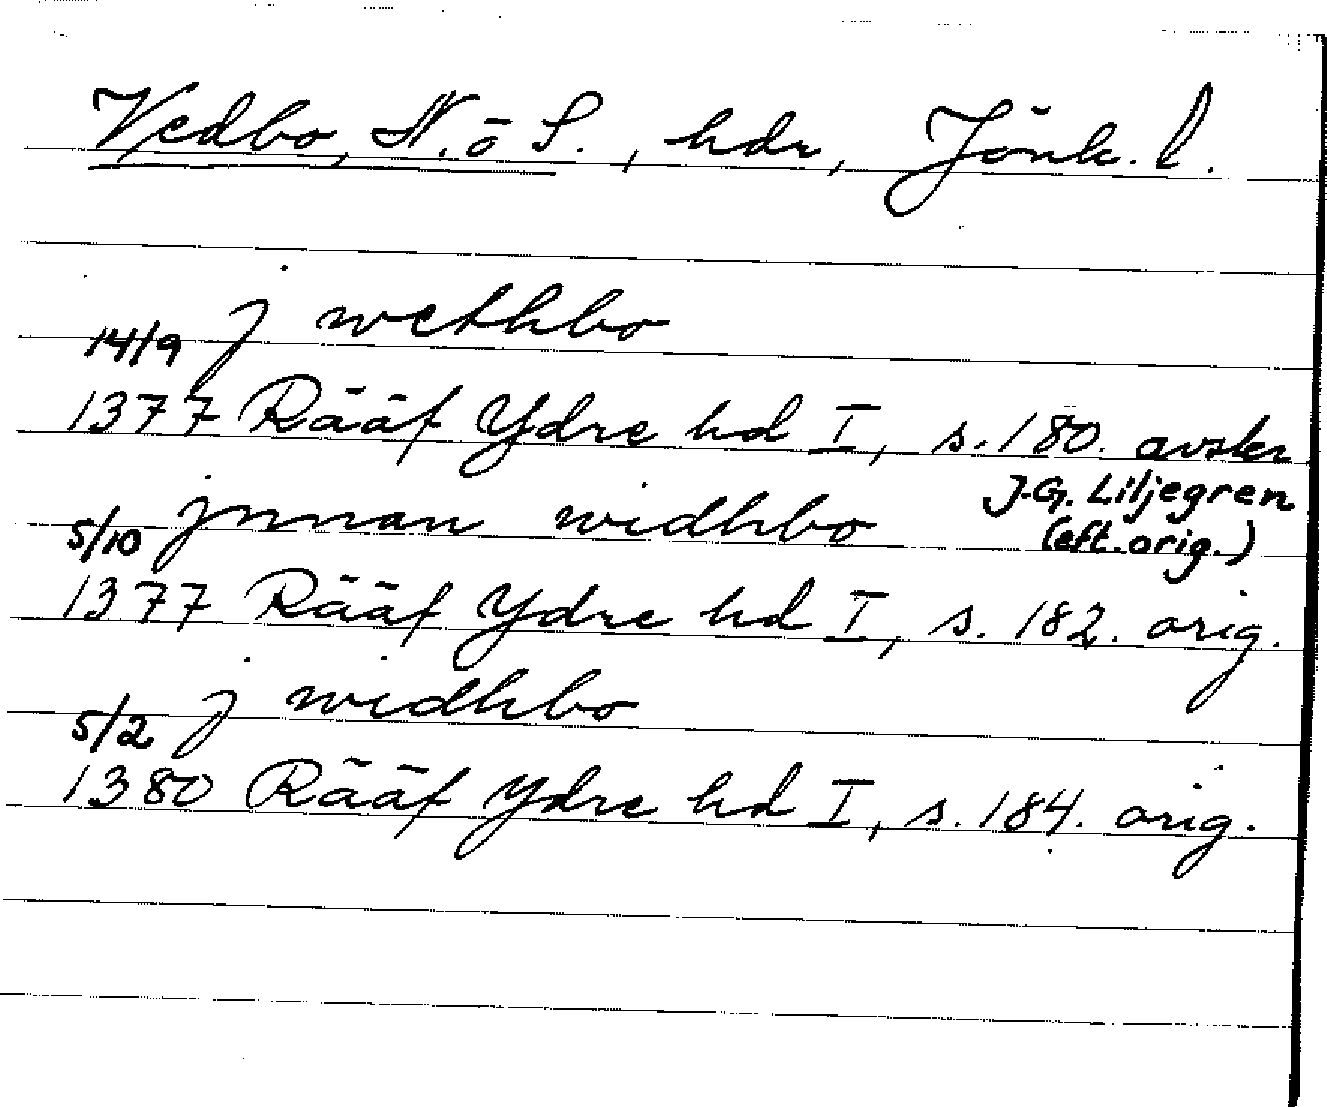 Vedbo, N. o S., hdr, Jönk. l.
j wethbo
14/9 1377 Rääf Ydre hd I, s. 180. avskr
J.G. Liljegren
(eft. orig.)
jnnan widhbo
5/10 1377 Rääf Ydre hd I, s. 182. orig.
j widhbo
5/2 1380 Rääf Ydre hd I, s. 184. orig.